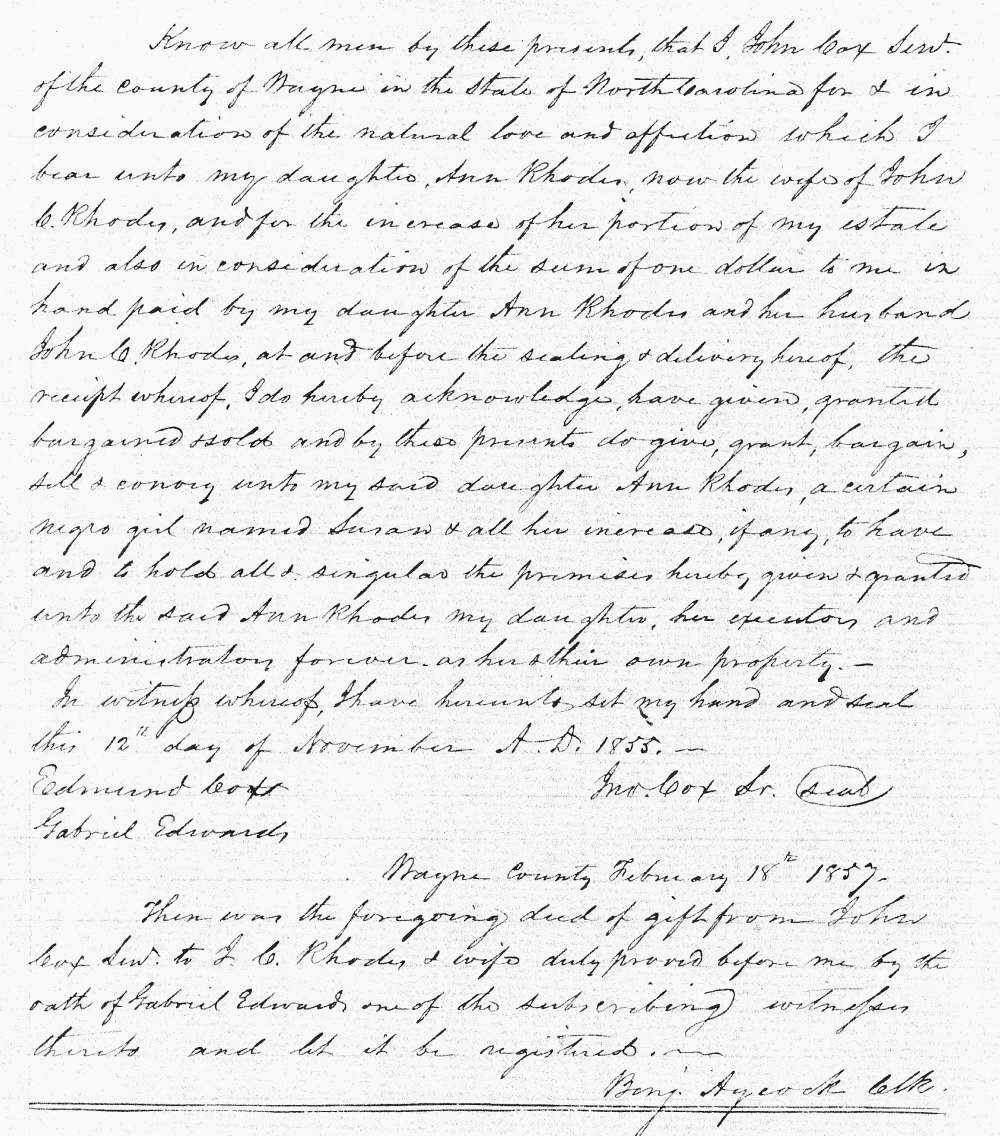 Know all men by these presents, that I, John Cox Senr.
of the county of Wayne in the state of North Carolina for & in
consideration of the natural love and affection which I
bear unto my daughter, Ann Rhodes, now the wife of John
C. Rhodes, and for the increase of her portion of my estate
and also in consideration of the sum of one dollar to me in
hand paid by my daughter Ann Rhodes and her husband
John C. Rhodes, at and before the sealing & delivery hereof, the
receipt whereof, I do hereby acknowledge, have given, granted
bargained & sold and by these presents do give, grant, bargain,
sell & convey unto my said daughter Ann Rhodes, a certain
negro girl named Susan & all her increase, if any, to have
and to hold all & singular the premises hereby given & granted
unto the said Ann Rhodes my daughter, her executors and
administrators forever as her & their own property. —
In witness whereof, I have hereunto set my hand and seal
this 12th day of November A. D. 1855. —
Edmund Cox Jno. Cox Sr. seal
Gabriel Edwards
Wayne County February 18th 1857.
Then was the foregoing deed of gift from John
Cox Senr. to J. C. Rhodes & wife duly proved before me by the
oath of Gabriel Edwards one of the subscribing witnesses
thereto and let it be registered. —
Benj. Aycock Clk.